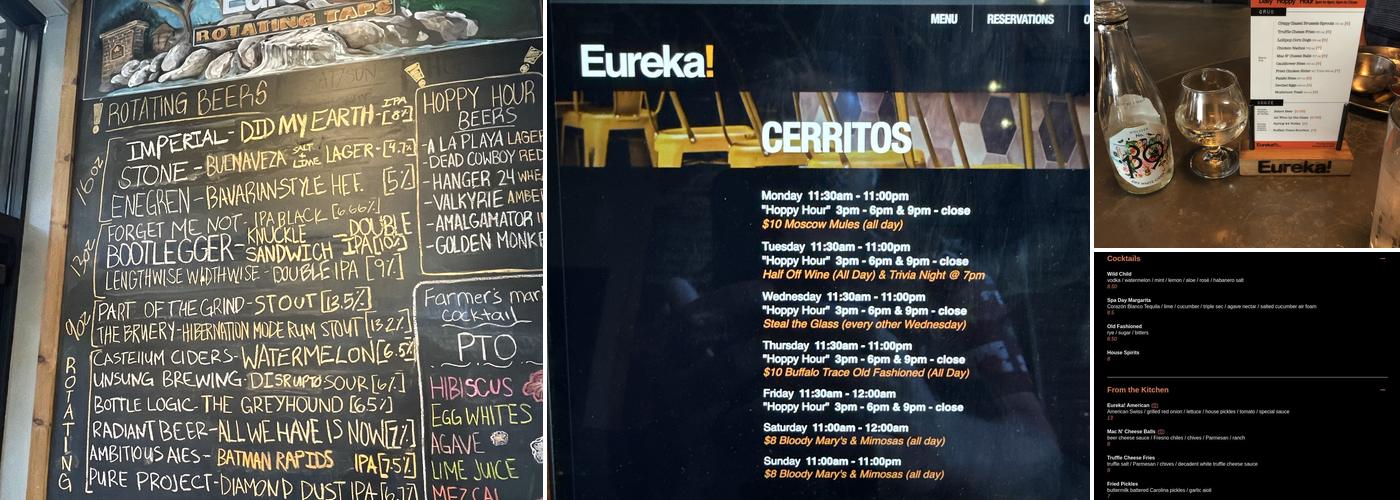 Eur
ROTATING TAPS
ROTATING BEERS
16oz
IMPERIAL - DID MY EARTH - IPA [8%]
STONE - BUENAVEZA SALT LIME LAGER - [4.7%]
ENEGREN - BAVARIAN-STYLE HEF. [5%]
13oz
FORGET ME NOT - IPA BLACK [6.66%]
BOOTLEGGER - KNUCKLE SANDWICH - DOUBLE IPA [10%]
LENGTHWISE WIDTHWISE - DOUBLE IPA [9%]
9oz
PART OF THE GRIND - STOUT [13.5%]
THE BRUERY - HIBERNATION MODE RUM STOUT [13.2%]
ROTATING
CASTELLUM CIDERS - WATERMELON [6.5%
UNSUNG BREWING - DISRUPTO SOUR [6%]
BOTTLE LOGIC - THE GREYHOUND [6.5%]
RADIANT BEER - ALL WE HAVE IS NOW [7%]
AMBITIOUS ALES - BATMAN RAPIDS IPA [7.5%]
PURE PROJECT - DIAMOND DUST IPA [6.7%]
HOPPY HOUR
BEERS
- A LA PLAYA LAGER
- DEAD COWBOY RED
- HANGER 24 WHE
- VALKYRIE AMBER
- AMALGAMATOR
- GOLDEN MONKE
Farmer's mar
cocktail
PTO
HIBISCUS
EGG WHITES
AGAVE
LIME JUICE
MEZCAL
MENU RESERVATIONS O
Eureka!
CERRITOS
Monday 11:30am - 11:00pm
"Hoppy Hour" 3pm - 6pm & 9pm - close
$10 Moscow Mules (all day)
Tuesday 11:30am - 11:00pm
"Hoppy Hour" 3pm - 6pm & 9pm - close
Half Off Wine (All Day) & Trivia Night @ 7pm
Wednesday 11:30am - 11:00pm
"Hoppy Hour" 3pm - 6pm & 9pm - close
Steal the Glass (every other Wednesday)
Thursday 11:30am - 11:00pm
"Hoppy Hour" 3pm - 6pm & 9pm - close
$10 Buffalo Trace Old Fashioned (All Day)
Friday 11:30am - 12:00am
"Hoppy Hour" 3pm - 6pm & 9pm - close
Saturday 11:00am - 12:00am
$8 Bloody Mary's & Mimosas (all day)
Sunday 11:00am - 11:00pm
$8 Bloody Mary's & Mimosas (all day)
GRUB
Crispy Glazed Brussels Sprouts
Truffle Cheese Fries
Lollipop Corn Dogs
Chicken Wedges
Mac N' Cheese Balls
Cauliflower Bites
Fried Chicken Slider
Deviled Eggs
Mushroom Toast
Eureka!
Cocktails
Wild Child
vodka / watermelon / mint / lemon / aloe / rosé / habanero salt
8.50
Spa Day Margarita
Corazón Blanco Tequila / lime / cucumber / triple sec / agave nectar / salted cucumber air foam
8.5
Old Fashioned
rye / sugar / bitters
8.50
House Spirits
6
From the Kitchen
Eureka! American
American Swiss / grilled red onion / lettuce / house pickles / tomato / special sauce
13
Mac N' Cheese Balls
beer cheese sauce / Fresno chiles / chives / Parmesan / ranch
8
Truffle Cheese Fries
truffle salt / Parmesan / chives / decadent white truffle cheese sauce
8
Fried Pickles
buttermilk battered Carolina pickles / garlic aioli